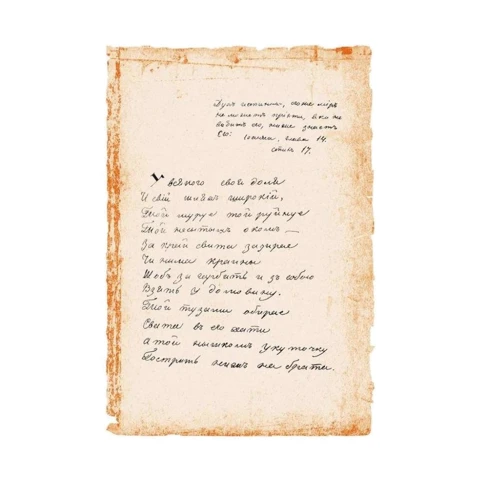 Духъ истины, его же міръ
не можетъ пріяти, яко не
видитъ его, ниже знаетъ
его: Іоанна, глава 14.
стихъ 17.
У всякого своя доля
И свій шляхъ широкій,
Той муруе той руйнуе
Той неситымъ окомъ —
За край свита зазирае
Чи нема країны
Щобъ загарбать и зъ собою
Взять у домовину.
Той тузами обирае
Свата въ его хати
А той нышкомъ у куточку
Гострить ножъ на брата.